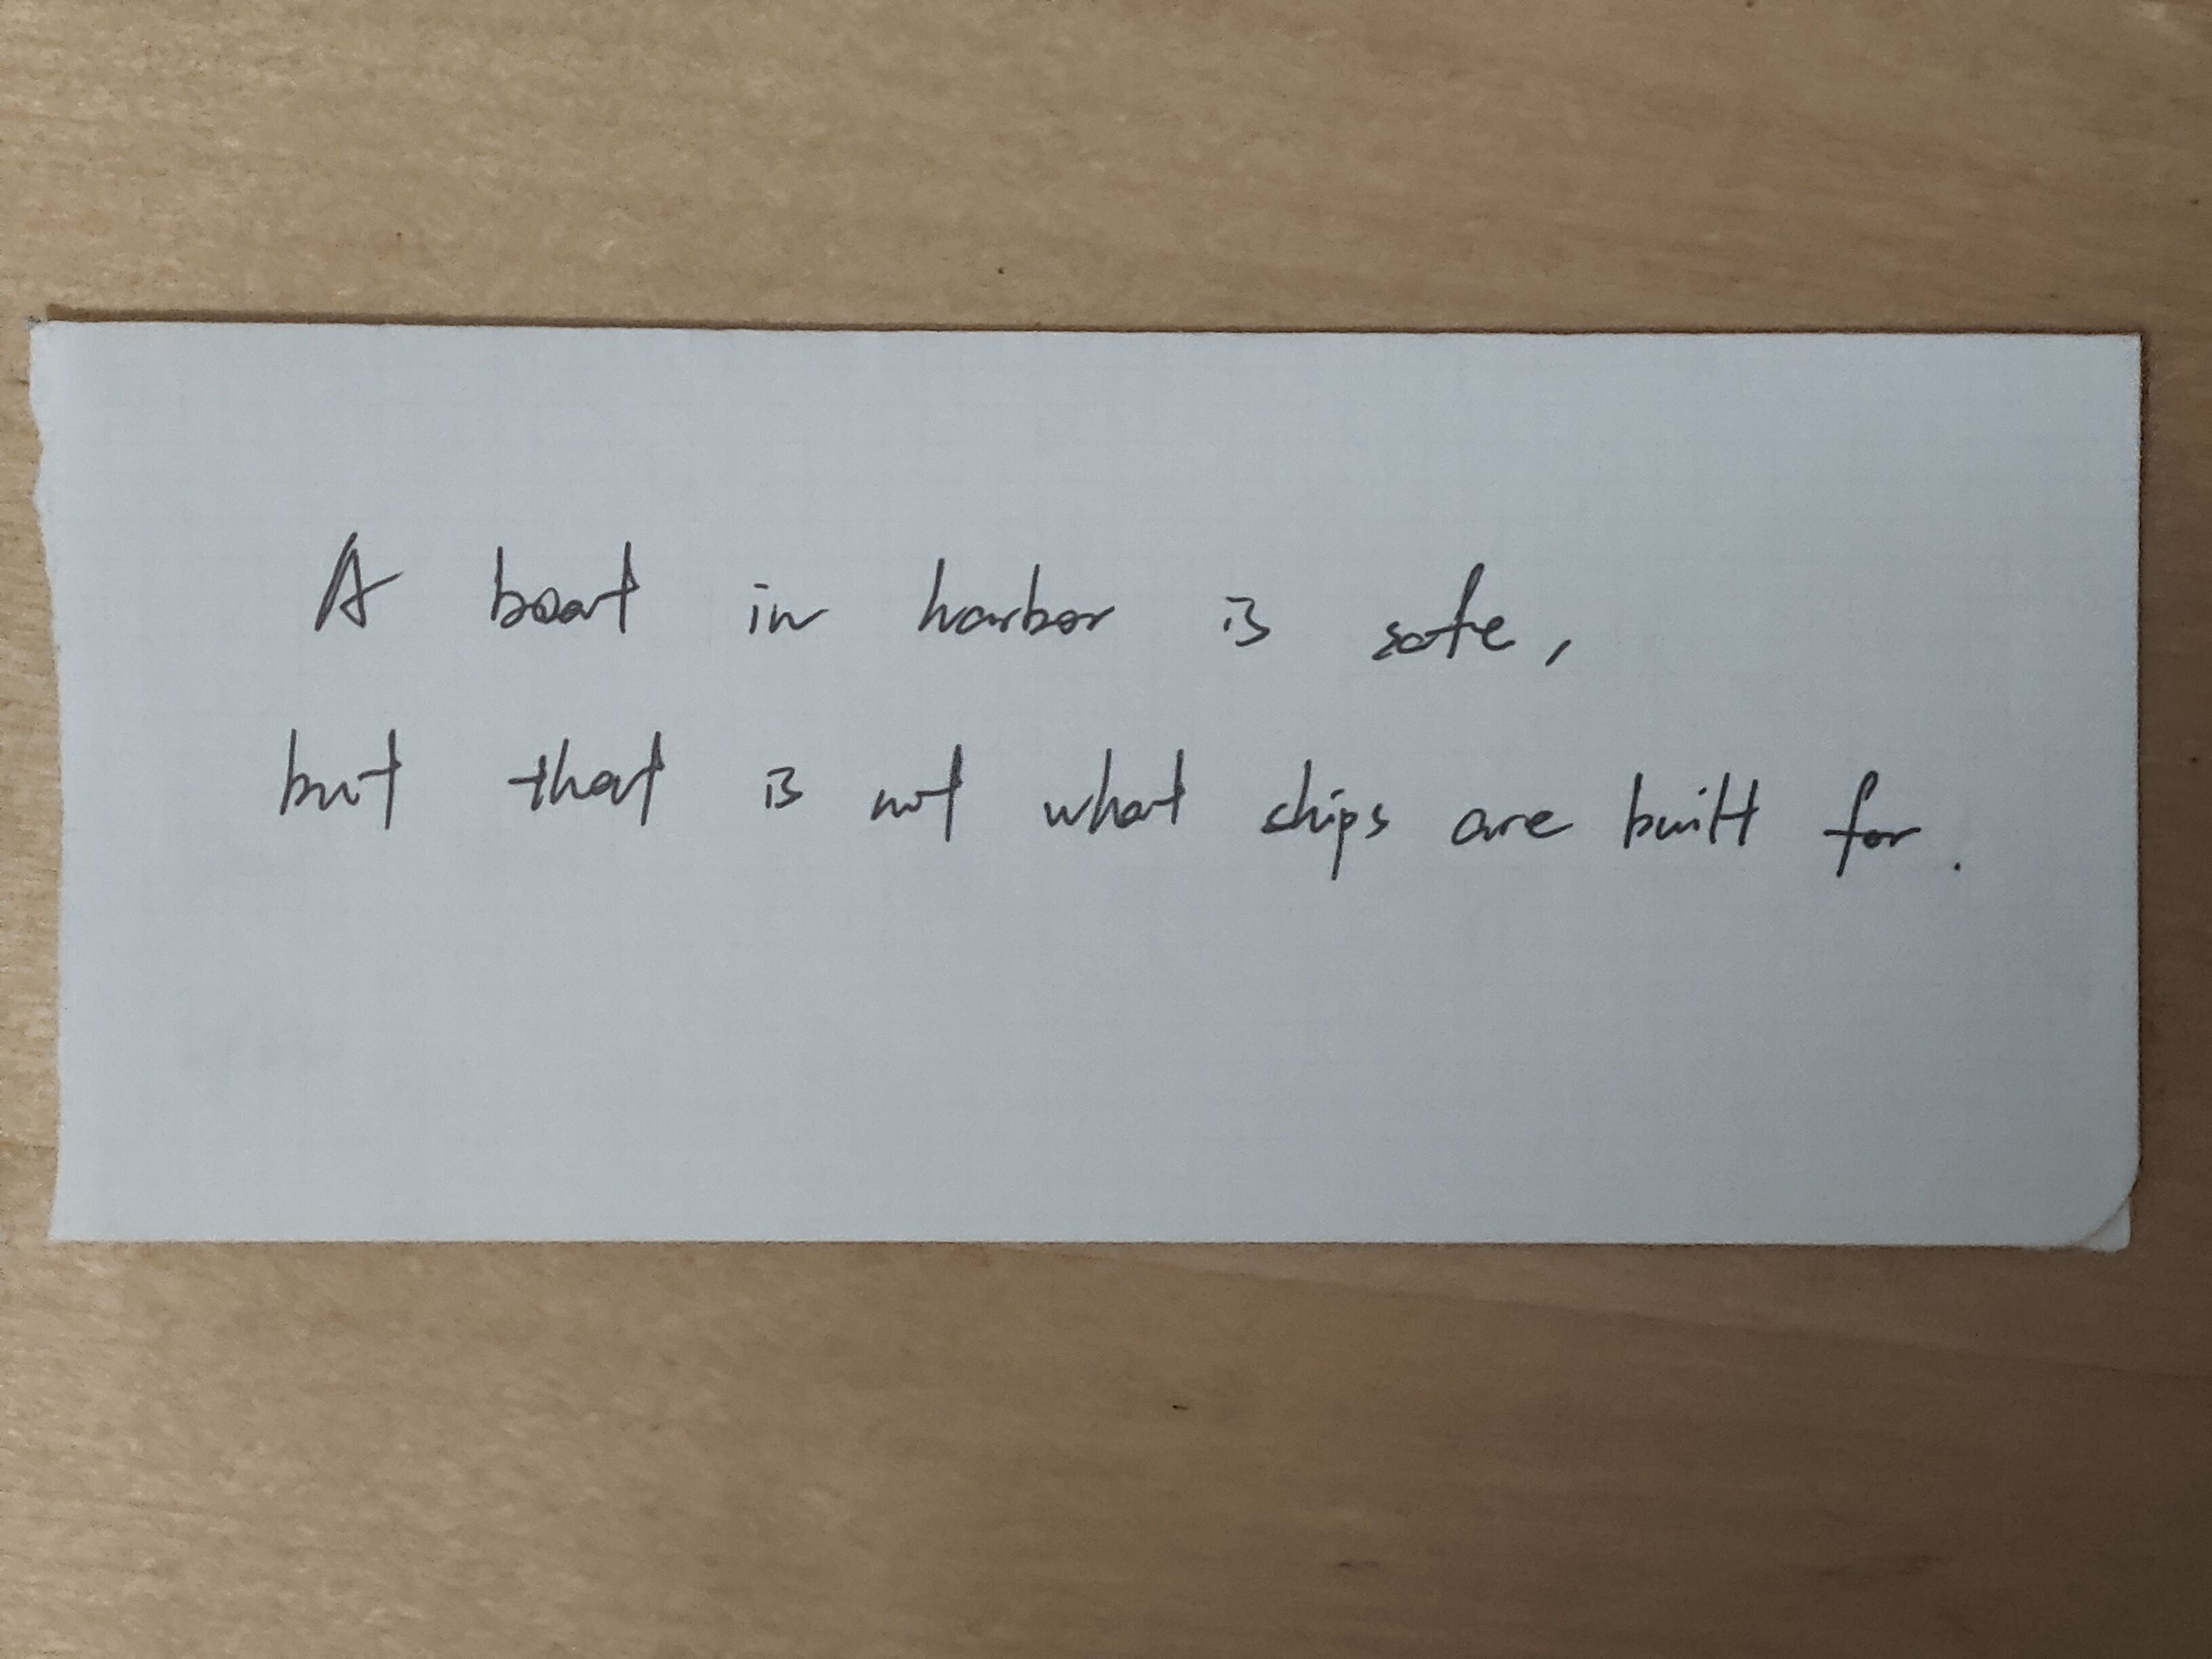 A boat in harbor is safe,
but that is not what ships are built for.